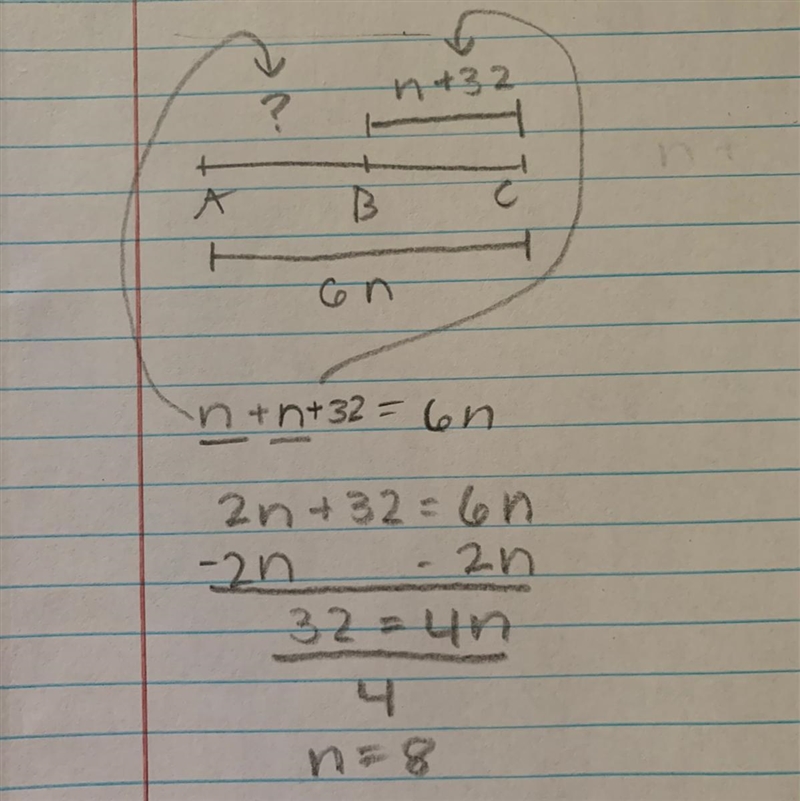 n+32
?
A B C
6n
n + n +32 = 6n
2n + 32 = 6n
-2n - 2n
32 = 4n
4
n = 8